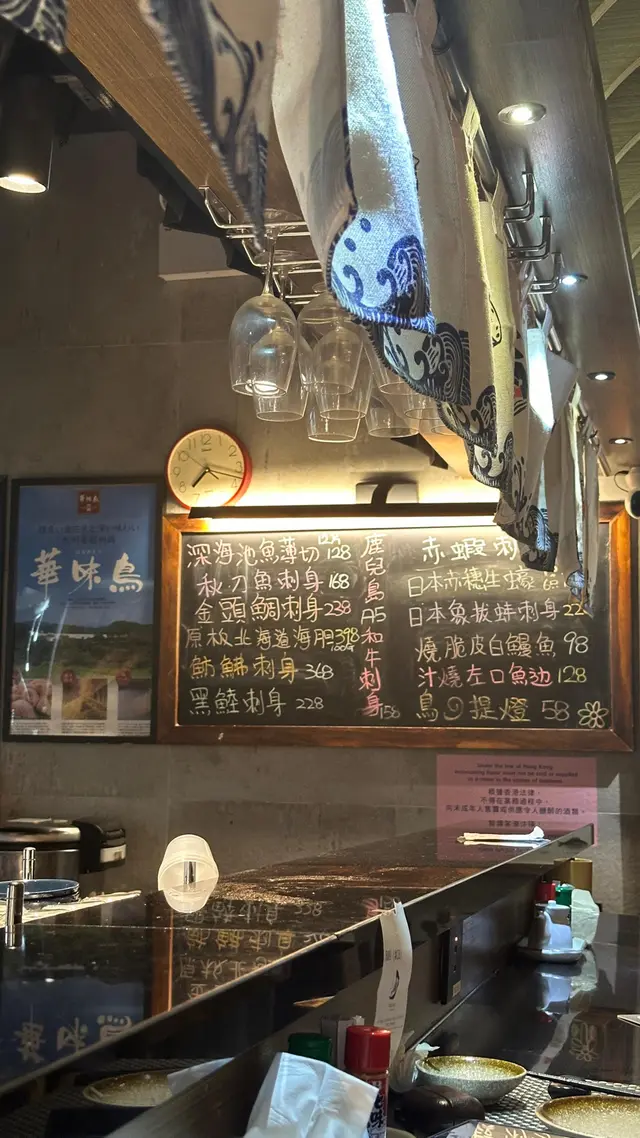 華味鳥
深海池魚薄切 128
秋刀魚刺身 168
金頭鯛刺身 238
原板北海道海胆 398
魴鮄刺身 368
黑鯥刺身 228
鹿兒島A5和牛刺身 158
赤蝦刺
日本赤穗生蠔
日本象拔蚌刺身 22
燒脆皮白鰻魚 98
汁燒左口魚边 128
鳥の提燈 58
Under the law of Hong Kong,
intoxicating liquor must not be sold or supplied
to a minor in the course of business.
根據香港法律，
不得在業務過程中，
向未成年人售賣或供應令人醺醉的酒類。